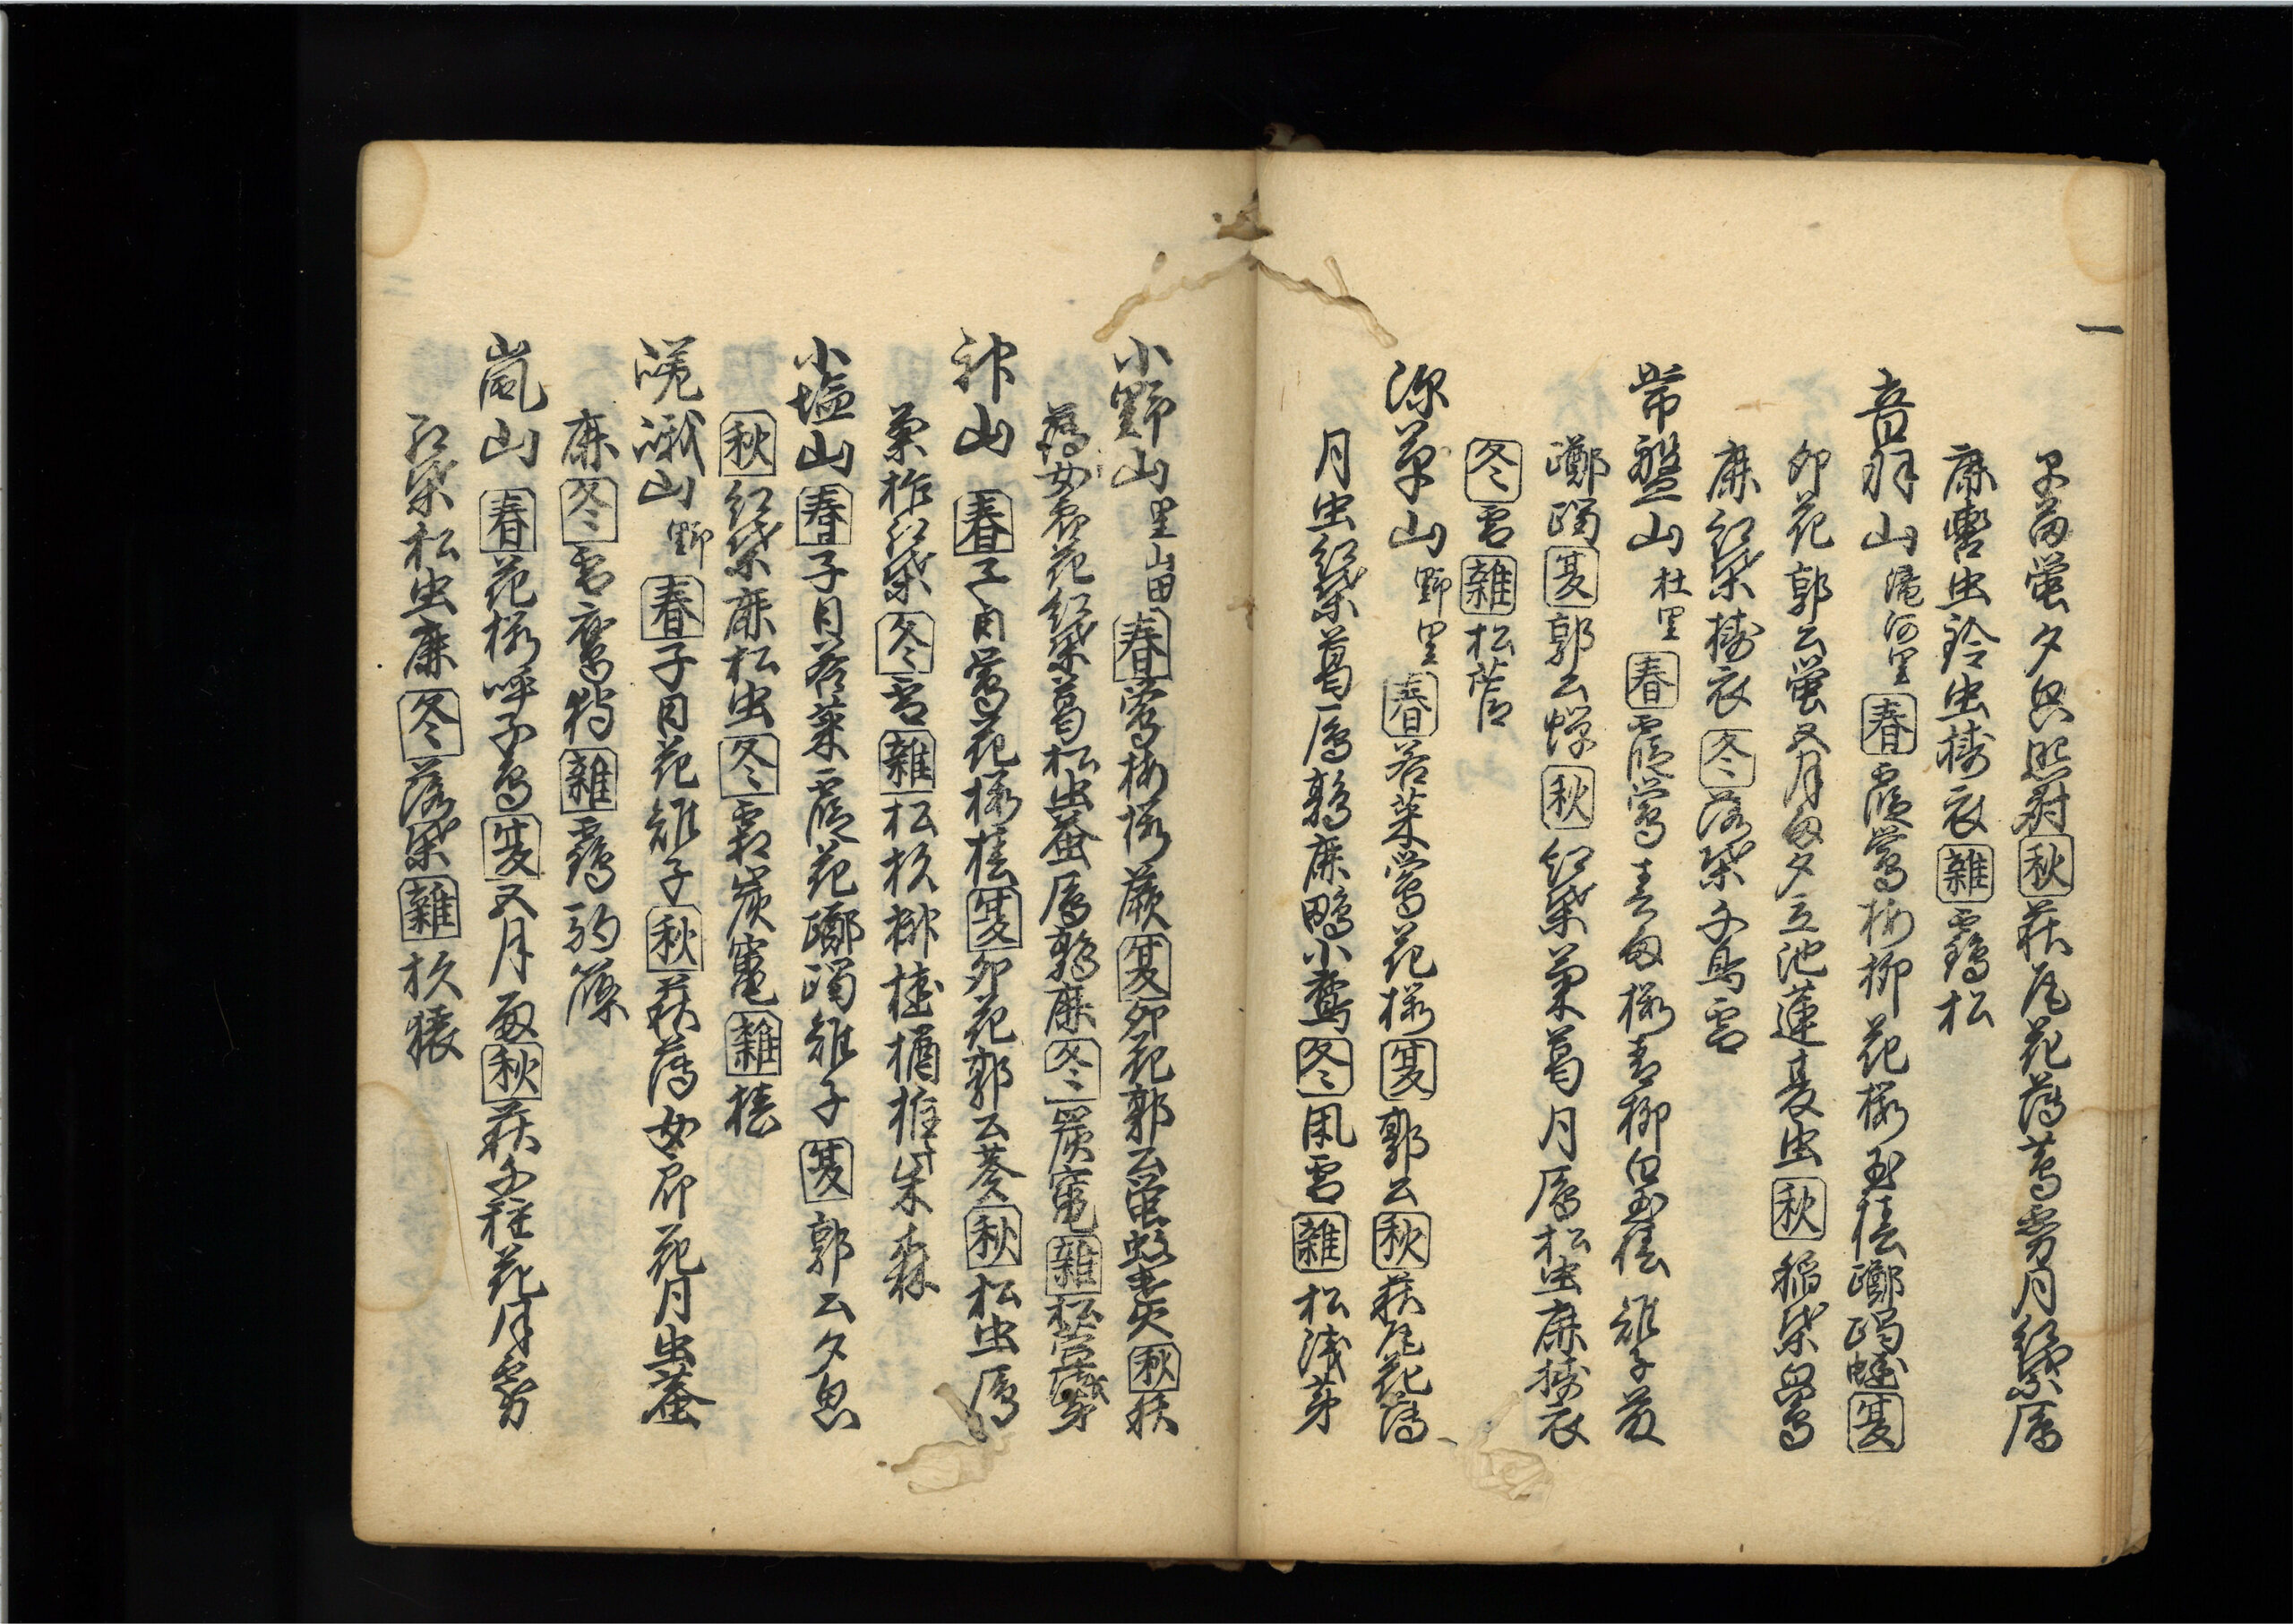 一
早苗蛍夕㒵照射秋萩尾花薄蔦雰月紅葉鴈
鹿轡虫鈴虫擣衣雑霧松
音羽山滝河里春霞鶯梅柳花桜玉椿躑躅蛙夏
卯花郭公蛍五月雨夕立池蓮夏虫秋稲葉
鹿紅葉擣衣冬落葉千鳥雪
常盤山杜里春霞鶯春雨桜青柳白玉椿雉子
躑躅夏郭公蝉秋紅葉菊葛月鴈松虫鹿擣衣
冬雪雑松
深草山野里春若菜鶯花桜夏郭公秋萩尾花薄
月虫紅葉葛鴈鶉鹿鴫小鷹冬風雪雑松浅茅
小野山里山田春鶯梅桜蕨夏卯花郭公蛍蚊遣火秋萩
薄女郎花紅葉葛松虫蛬鴈鶉鹿冬炭竃雑松菅浅茅
神山春子日鶯花桜桂夏卯花郭公葵秋松虫鴈
菊柞紅葉冬雪雑松杉榊椎柴森
小塩山春子日若菜霞花躑躅雉子夏郭公夕㒵
秋紅葉鹿松虫冬霜炭竃雑椿
嵯峨山野春子日花雉子秋萩薄女郎花月虫蛬
鹿冬雪鷹狩雑鶴篠
嵐山春花桜呼子鳥夏五月雨秋萩千種花月雰
紅葉松虫鹿冬落葉雑杉猿